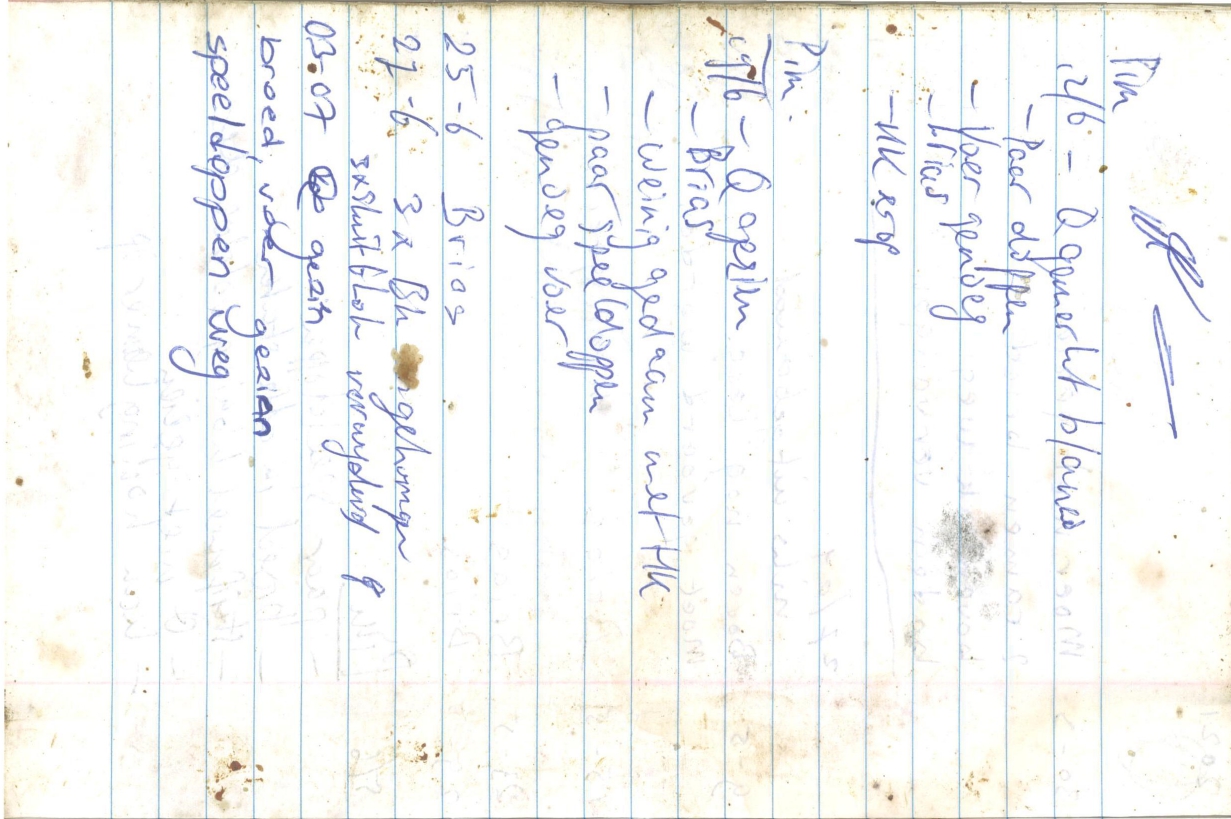 Pim
12/6 - Q gemerkt blauw
- Paar doppen
- Voer genoeg
- Brias
- HK erop
Pim.
19/6 - Q gezien
- Brias
- weinig gedaan met HK
- paar speeldoppen
- genoeg voer
25-6 Brias
27-6 3x BK
3x sluitblok verwijderd
03-07 gezien
broed, voer gezien
speeldoppen weg